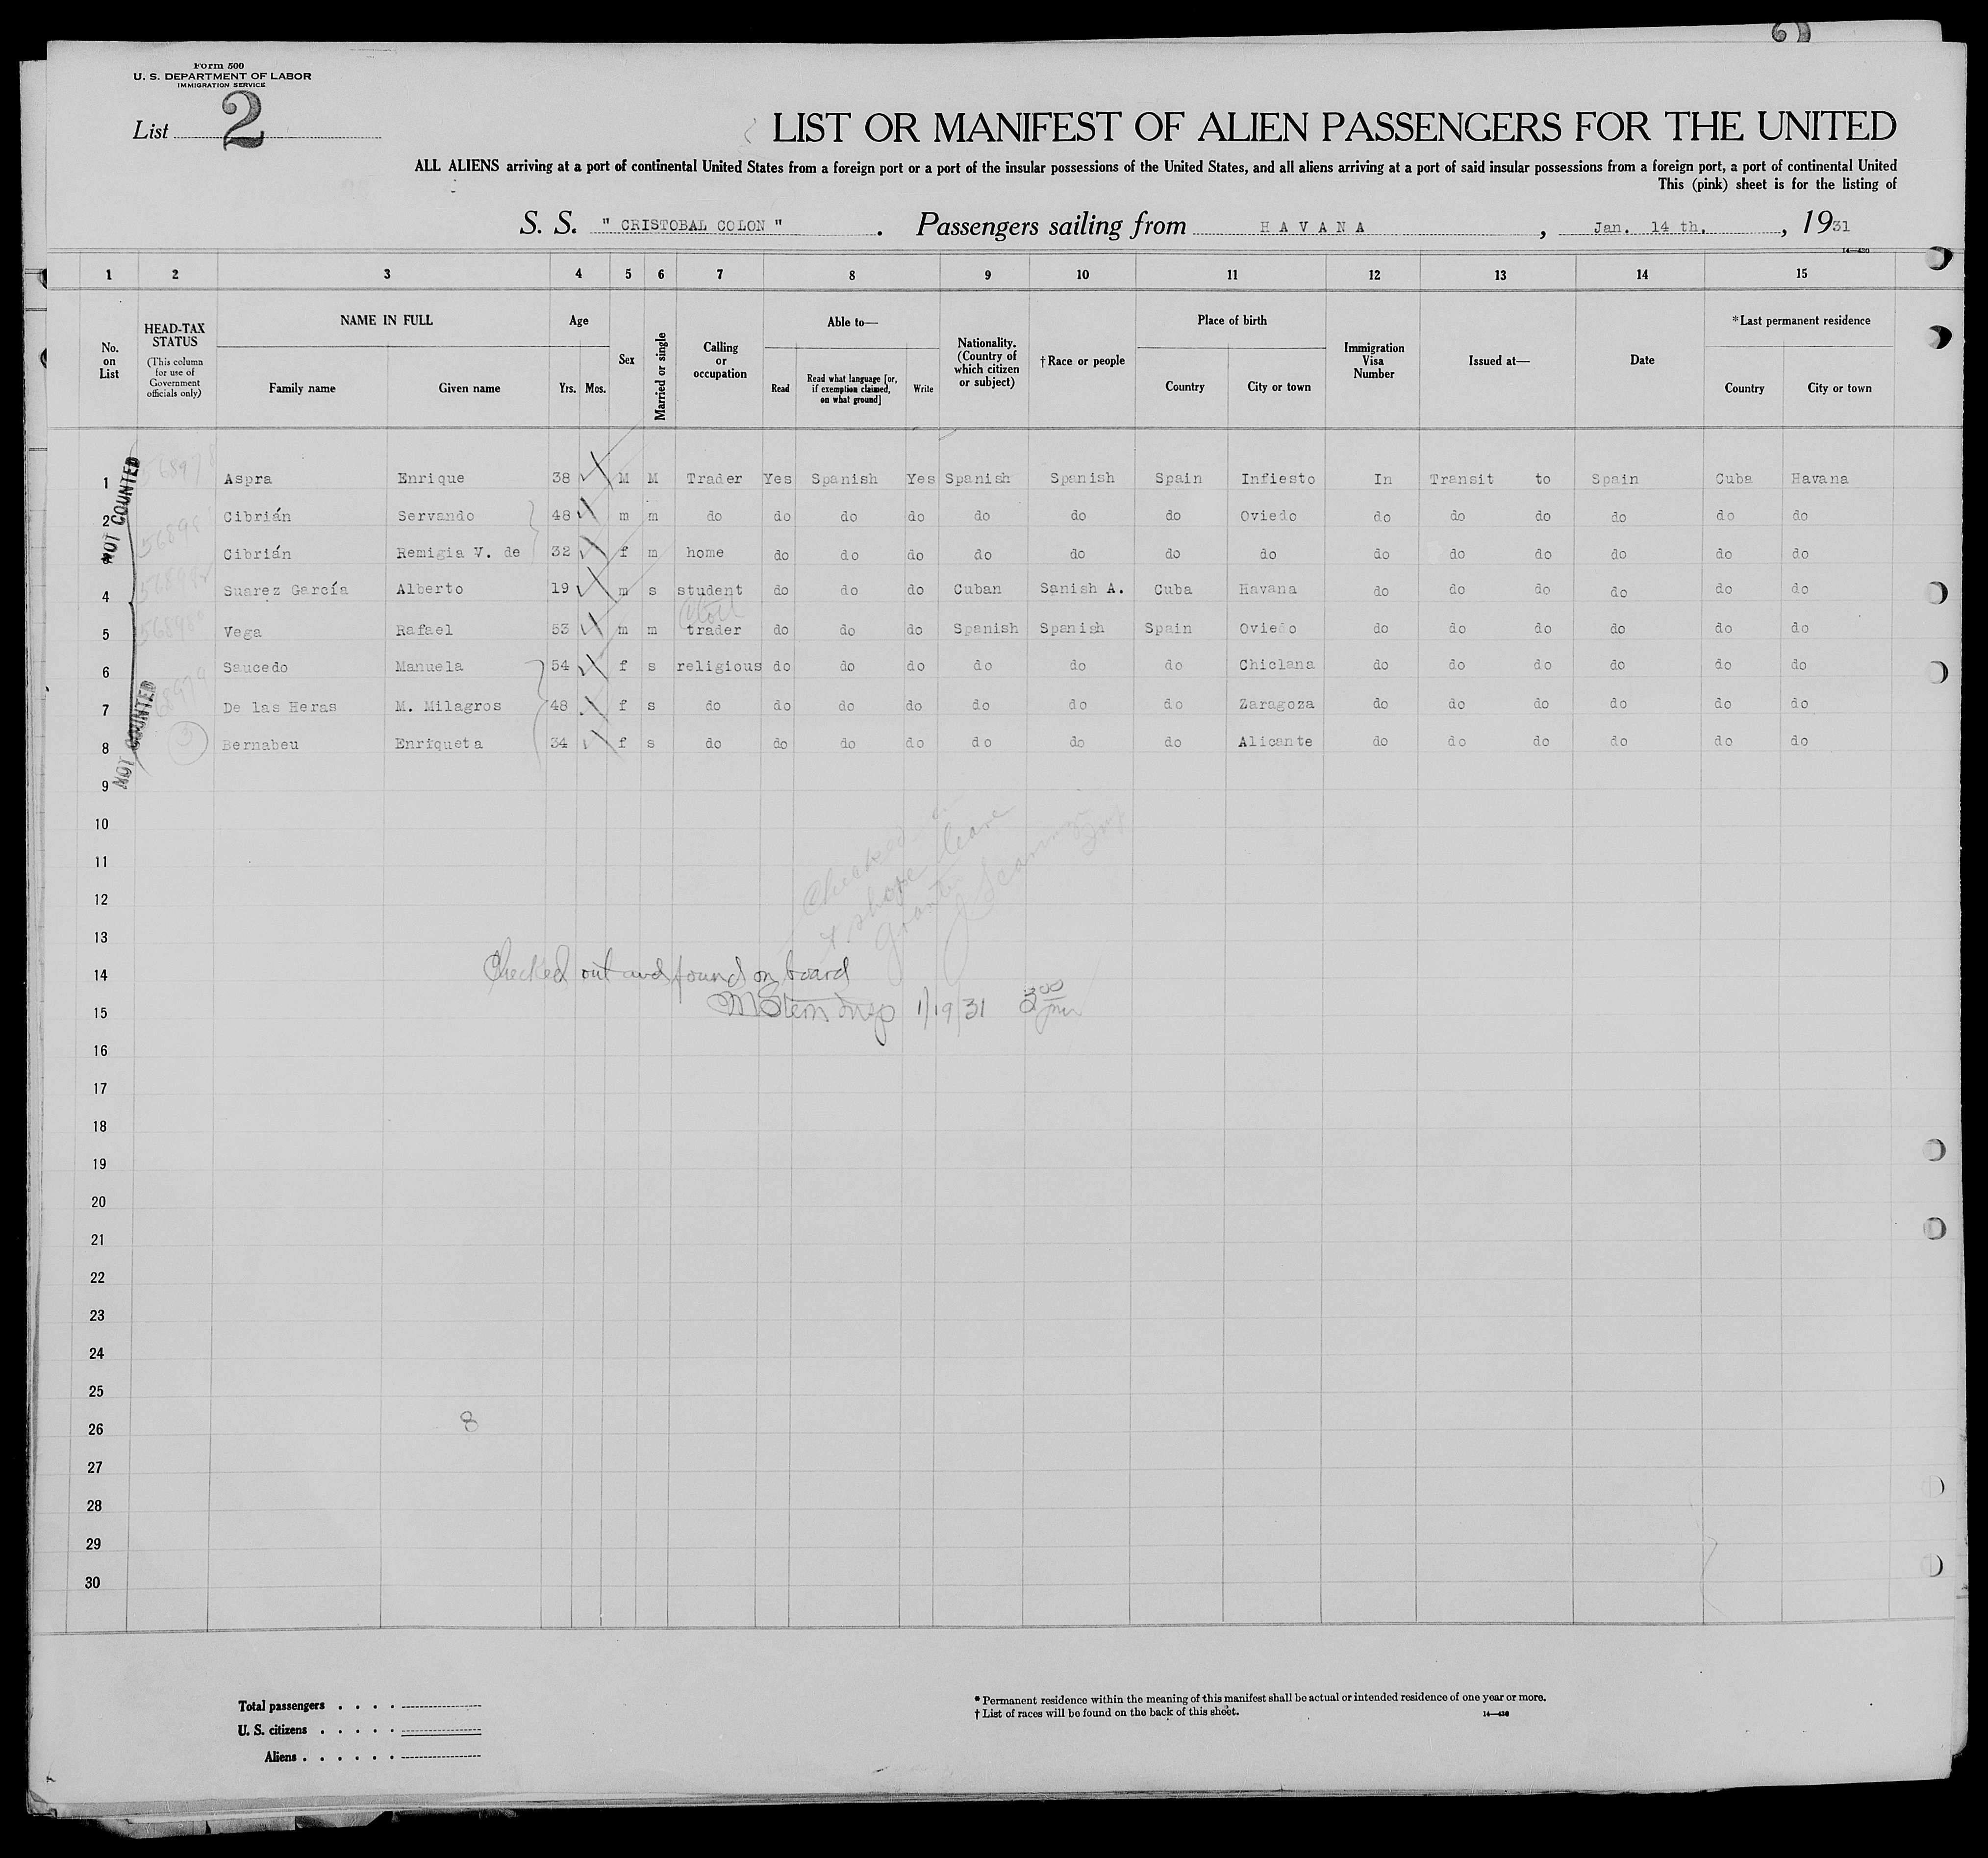 Form 500
U. S. DEPARTMENT OF LABOR
IMMIGRATION SERVICE
List 2
LIST OR MANIFEST OF ALIEN PASSENGERS FOR THE UNITED
ALL ALIENS arriving at a port of continental United States from a foreign port or a port of the insular possessions of the United States, and all aliens arriving at a port of said insular possessions from a foreign port, a port of continental United
This (pink) sheet is for the listing of
S. S. " CRISTOBAL COLON " . Passengers sailing from H A V A N A , Jan. 14 th. , 1931
14—430
1 2 3 4 5 6 7 8 9 10 11 12 13 14 15
No. on List
HEAD-TAX STATUS
(This column for use of Government officials only)
NAME IN FULL
Family name Given name
Age
Yrs. Mos.
Sex
Married or single
Calling or occupation
Able to—
Read
Read what language [or, if exemption claimed, on what ground]
Write
Nationality. (Country of which citizen or subject)
†Race or people
Place of birth
Country City or town
Immigration Visa Number
Issued at—
Date
*Last permanent residence
Country City or town
NOT COUNTED
1 Aspra Enrique 38 M M Trader Yes Spanish Yes Spanish Spanish Spain Infiesto In Transit to Spain Cuba Havana
2 Cibrián Servando 48 m m do do do do do do do Oviedo do do do do do do
Cibrián Remigia V. de 32 f m home do do do do do do do do do do do do do
4 Suarez García Alberto 19 m s student do do do Cuban Sanish A. Cuba Havana do do do do do do
5 Vega Rafael 53 m m trader do do do Spanish Spanish Spain Oviedo do do do do do do
6 Saucedo Manuela 54 f s religious do do do do do do Chiclana do do do do do do
7 De las Heras M. Milagros 48 f s do do do do do do do Zaragoza do do do do do do
8 Bernabeu Enriqueta 34 f s do do do do do do do Alicante do do do do do do
NOT COUNTED
3
9
10
11
12
13
14
15
16
17
18
19
20
21
22
23
24
25
26
27
28
29
30
Checked
shore leave
granted
Checked out and found on board
M Stern Insp 1/19/31 3 00 pm
8
Total passengers . . . .
U. S. citizens . . . . .
Aliens . . . . . .
* Permanent residence within the meaning of this manifest shall be actual or intended residence of one year or more.
† List of races will be found on the back of this sheet.
14—430